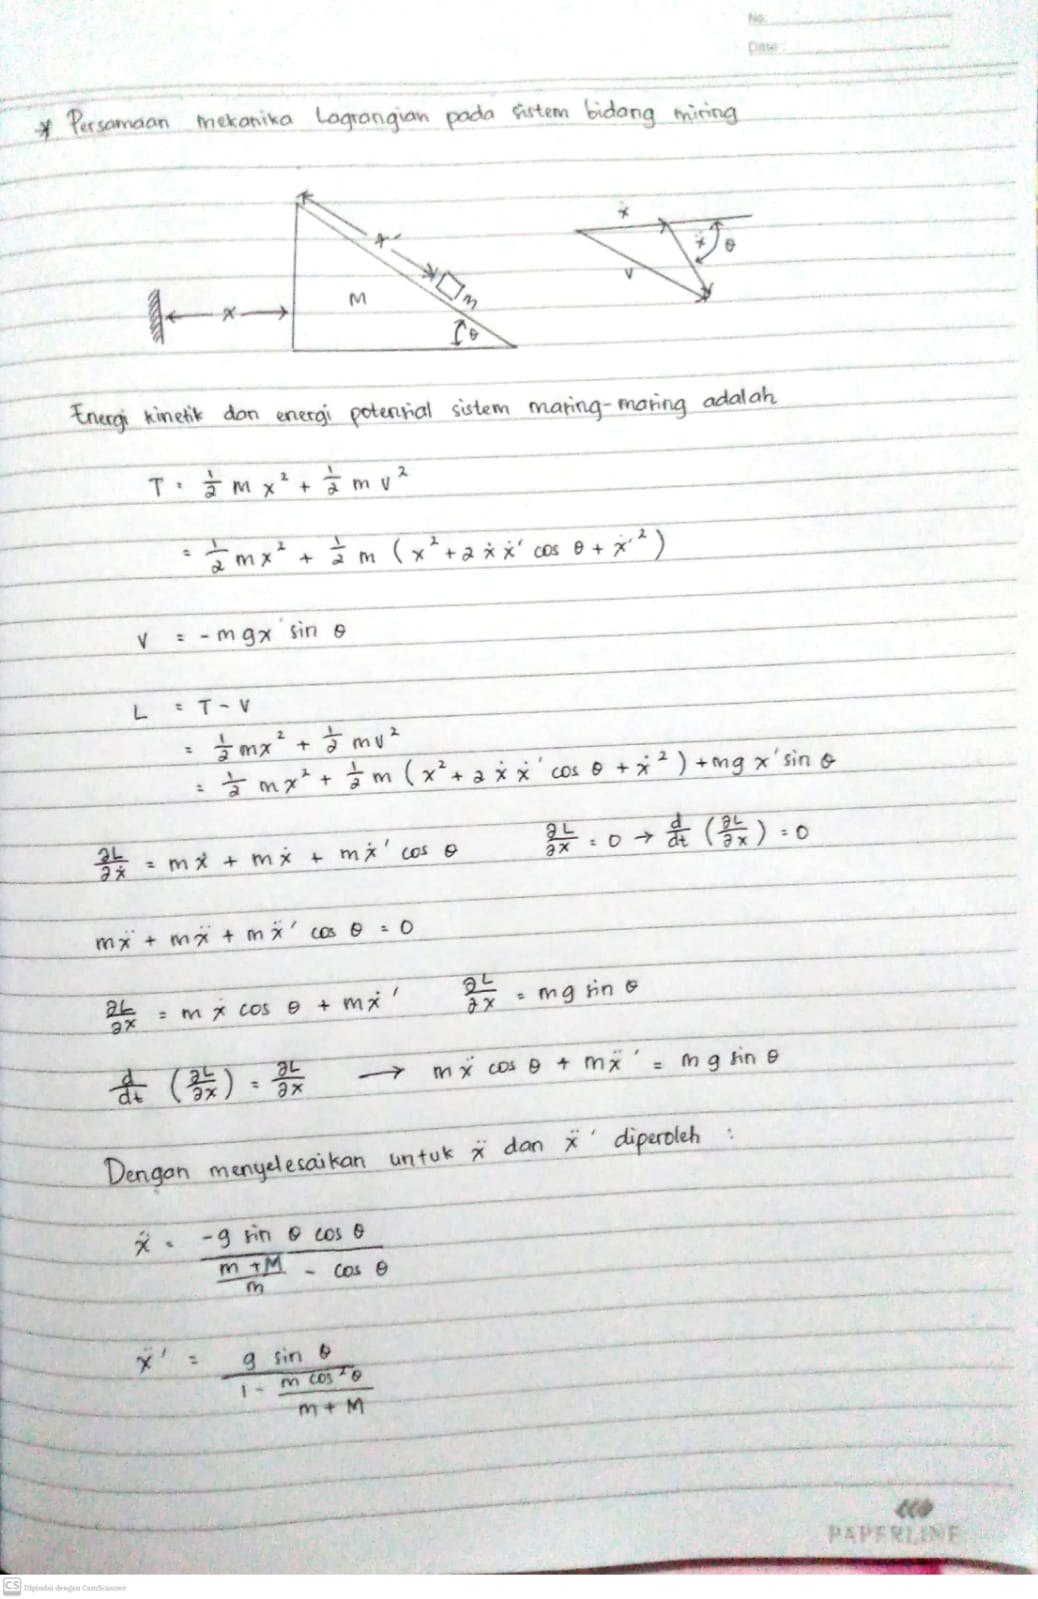 No:
Date:
* Persamaan mekanika Lagrangian pada sistem bidang miring
x'
m
M
θ
x
ẋ
ẋ
θ
v
Energi kinetik dan energi potensial sistem masing-masing adalah
T = 1/2 m x² + 1/2 m v²
= 1/2 m x² + 1/2 m (x² + 2 ẋ ẋ' cos θ + ẋ'²)
V = -mgx' sin θ
L = T - V
= 1/2 mx² + 1/2 mv²
= 1/2 mx² + 1/2 m (x² + 2 ẋ ẋ' cos θ + ẋ²) + mg x' sin θ
∂L/∂ẋ = mẋ + mẋ + mẋ' cos θ ∂L/∂x = 0 → d/dt (∂L/∂x) = 0
mẍ + mẍ + mẍ' cos θ = 0
∂L/∂x = m ẋ cos θ + mẋ' ∂L/∂x = mg sin θ
d/dt (∂L/∂x) = ∂L/∂x → mẍ cos θ + mẍ' = mg sin θ
Dengan menyelesaikan untuk ẍ dan ẍ' diperoleh :
ẍ = -g sin θ cos θ / ((m + M)/m - cos θ)
ẍ' = g sin θ / (1 - m cos²θ/(m + M))
PAPERLINE
CS Dipindai dengan CamScanner